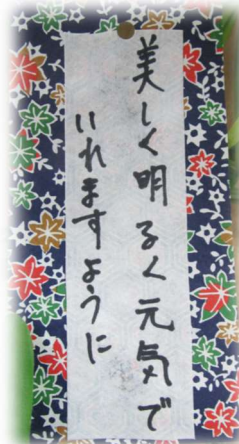 美しく明るく元気で
いれますように